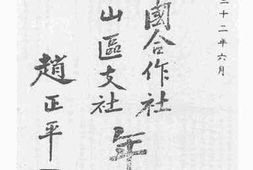 二十二年六月
國合作社
山區支社
年
趙正平